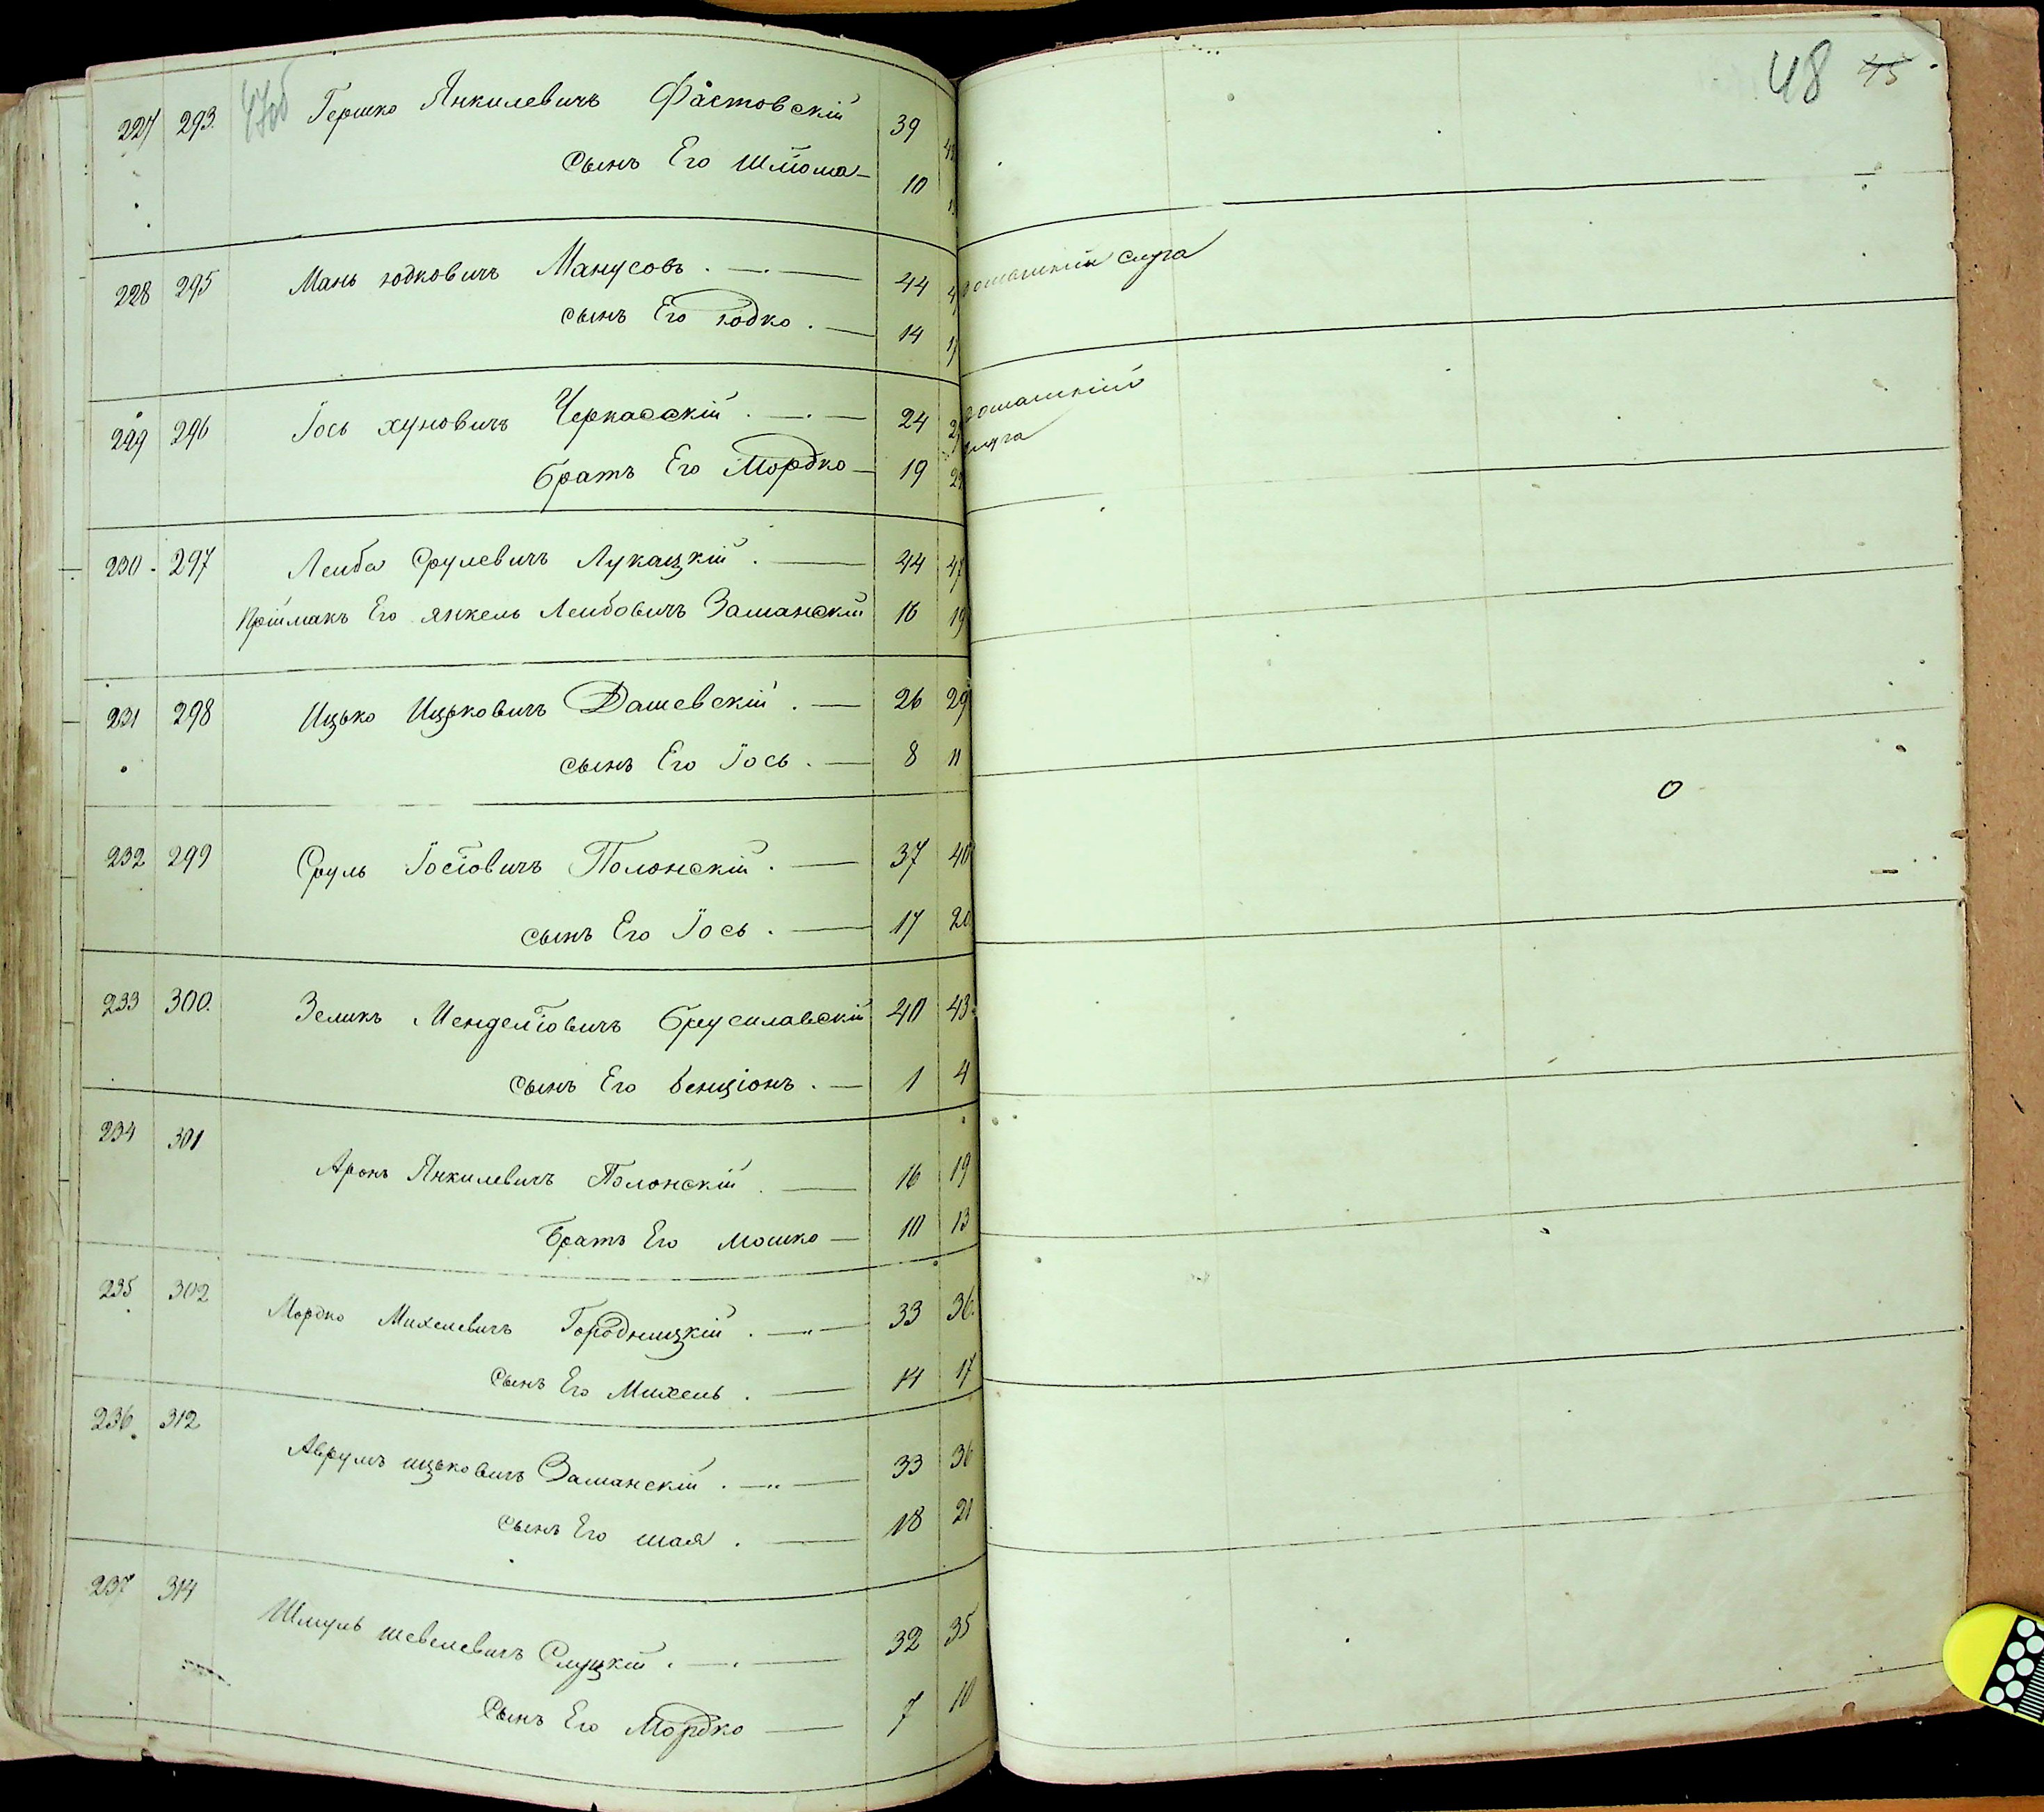 48 45
47об
227 293. Гершко Янкилевичъ Фастовскій 39
сынъ Его Шліома 10
228 295 Мань юдковичъ Манусовъ. 44 домашній слуга
сынъ Его юдко. 14
229 296 Іось хуновичъ Черкасскій. 24 домашній
слуга
братъ Его Мордко 19
230. 297 Леиба Срулевичъ Лукацкій. 44 47
Пріймакъ Его янкель Леибовичъ Заманскій 16 19
231 298 Ицько Ицьковичъ Дашевскій. 26 29
сынъ Его Іось. 8 11
232 299 Сруль Іосіовичъ Полонскій. 37 40
сынъ Его Іось. 17 20
233 300. Зеликъ Менделіовичъ Брусилавскій 40 43
сынъ Его Бенціонъ. 1 4
234 301 Аронъ Янкилевичъ Полонскій. 16 19
Братъ Его мошко 10 13
235 302 Мордко Михелевичъ Городницкій. 33 36.
сынъ Его Михель. 14 17
236. 312 Аврумъ ицьковичъ Заманскій. 33 36
сынъ Его шая. 18 21
237 314 Шмуль шевелевичъ Слуцкій. 32 35
Сынъ Его Мордко 7 10
0